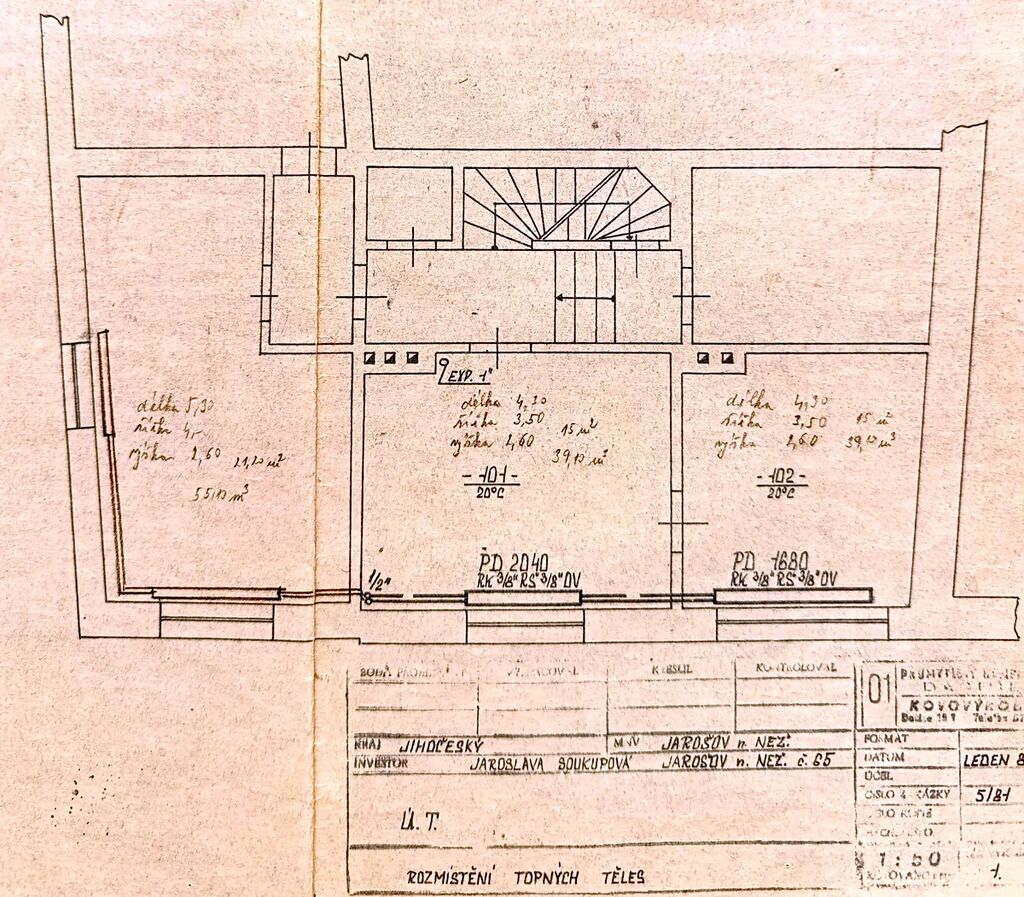 EXP. 1"
délka 5,30
šířka 4,-
výška 2,60
21,20 m²
55,10 m³
délka 4,30
šířka 3,50
15 m²
výška 2,60
39,10 m³
-101-
20°C
délka 4,30
šířka 3,50
15 m²
výška 2,60
39,10 m³
-102-
20°C
PD 2040
RK 3/8" RŠ 3/8" ÚV
PD 1680
RK 3/8" RŠ 3/8" ÚV
1/2"
KRESLIL
KONTROLOVAL
01
KOVOVÝROB
KRAJ JIHOČESKÝ
MNV JAROŠOV n. NEŽ.
FORMÁT
INVESTOR JAROSLAVA SOUKUPOVÁ JAROŠOV n. NEŽ. č. 85
DATUM LEDEN 8
ÚČEL
ČÍSLO ZAKÁZKY 5/81
Ú. T.
1:50
1.
ROZMÍSTĚNÍ TOPNÝCH TĚLES